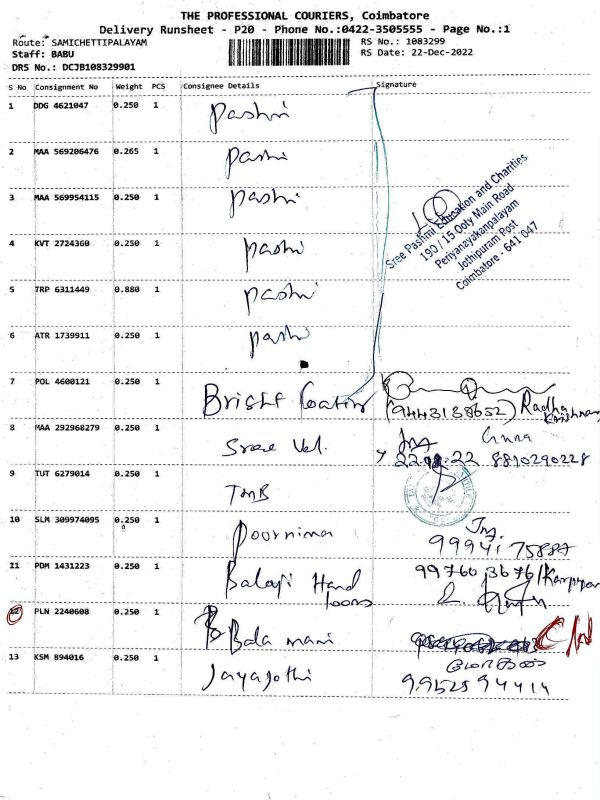 THE PROFESSIONAL COURIERS, Coimbatore
Delivery Runsheet - P20 - Phone No.:0422-3505555 - Page No.:1
Route: SAMICHETTIPALAYAM
RS No.: 1083299
Staff: BABU
RS Date: 22-Dec-2022
DRS No.: DCJB108329901
S No Consignment No Weight PCS Consignee Details Signature
1 DDG 4621047 0.250 1 Pashmi
2 MAA 569206476 0.265 1 pashmi
3 MAA 569954115 0.250 1 pashmi
4 KVT 2724360 0.250 1 pashmi
5 TRP 6311449 0.880 1 pashmi
6 ATR 1739911 0.250 1 pashmi
Sree Pashmi Education and Charities
190 / 15 Ooty Main Road
Periyanayakanpalayam
Jothipuram Post
Coimbatore - 641 047
7 POL 4600121 0.250 1 Bright Coating
(9443138652) Radha Krishnan
8 MAA 292968279 0.250 1 Sree Vel.
8810290228
9 TUT 6279014 0.250 1 TMB
10 SLM 309974095 0.250 1 Poornima
99941 75887
11 PDM 1431223 0.250 1 Balaji Hand looms
99760 3676
12 PLN 2240608 0.250 1 Bala mani
13 KSM 894016 0.250 1 Jayajothi
9952894414